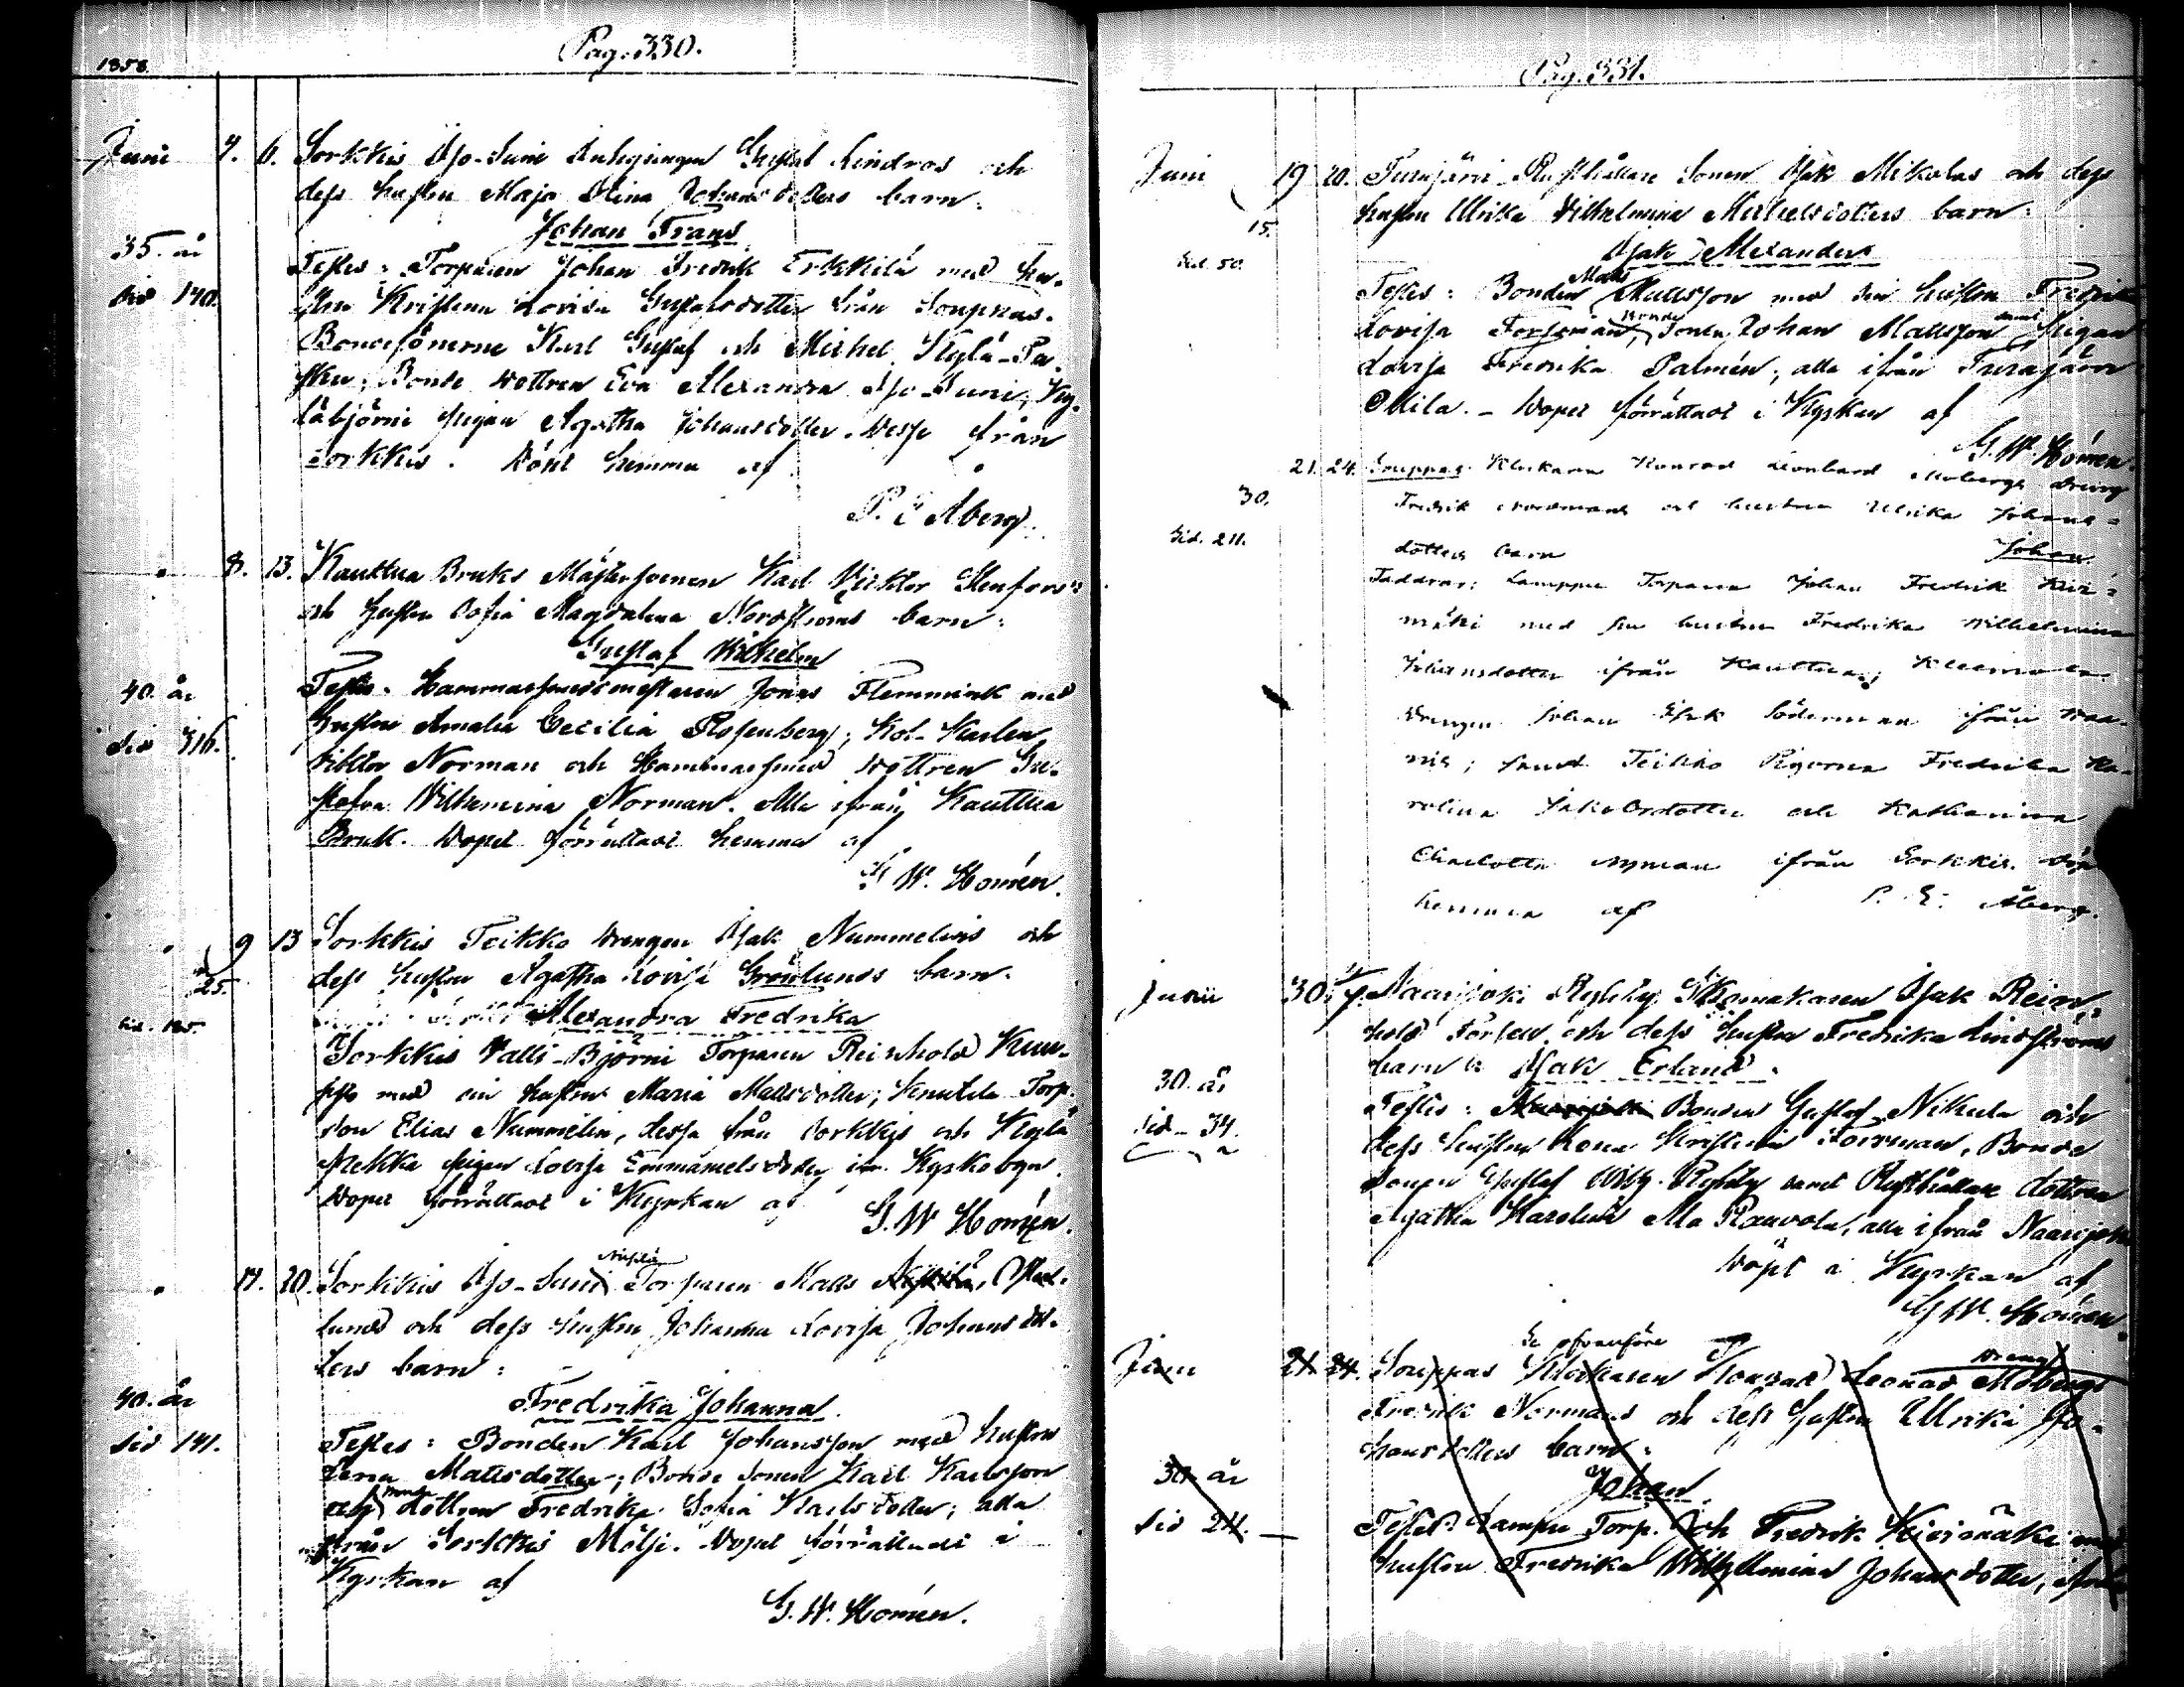 1858.
Pag. 330.
Juni 7. 6. Sorkkis Ajo-Suni Gustaf Lindros och
dess hustru Maja Stina Johansdotters barn.
Johan Frans
35. år
Sid 140.
Testes: Torparen Johan Fredrik Erkkilä med hu-
stru Kristina Lovisa Gustafsdotter från Souppas.
Bondesönerne Karl Gustaf och Michel Kylä-Pa-
Bonde dottren Eva Alexandra Ajo-Suni, Ky-
läbjörni pigan Agatha Johansdotter. Desse från
Sorkkis. Döpt hemma af
P. E. Åberg.
8. 13. Kauttua Bruks Mästersvennen Karl Viktor Stenfors
och hustru Sofia Magdalena Nordströms barn:
Gustaf Wilhelm
40. år
Sid 316.
Testes. Hammarsmedsmästaren Jonas Flemmink med
hustru Amalia Cecilia Rosenberg; Kol-Karlen
Viktor Norman och Hammarsmeds dottren Gu-
stafva Vilhemina Norman. Alla ifrån Kauttua
Bruk. Dopet förrättadt hemma af
G. W. Homén.
9 13 Sorkkis Teikko drengen Isak Nummelins och
dess hustru Agatha Lovisa Grönlunds barn.
25.
Sid. 185.
Alexandra Fredrika
Sorkkis Valli-Björni Torparen Reinhold
med sin hustru Maria Mattsdotter; Knutila Torp.
son Elias Nummelin, dessa från Sorkkis och Kylä
Pekka pigan Lovisa Emmanuelsdotter ifr. Kyrkobyn.
Dopet förrättadt i Kyrkan af
G. W Homén.
17. 20. Sorkkis Ajo-Suni Torparen Matts
lunds och dess hustru Johanna Lovisa Johansdot-
ters barn:
Fredrika Johanna.
40. år
Sid 141.
Testes: Bonden Karl Johansson med hustru
Lena Mattsdotter; Bonde sonen Karl Karlsson
och dottren Fredrika Sofia Karlsdotter; alla
från Sorkkis Mölsi. Dopet förrättadt i
Kyrkan af
G. W. Homén.
Pag. 331.
Juni 19 20. Turajärvi Rusthållare Sonen Isak Mikolas och dess
hustru Ulrika Vilhelmina Michelsdotters barn:
15.
Sid. 50.
Isak Alexander
Testes: Bonden Matts Mattsson med sin hustru Fredrika
Lovisa Forsman, Bonde Sonen Johan Mattsson samt Pigan
Lovisa Fredrika Palmén, alla ifrån Turajärvi
Mila. - Dopet förrättadt i Kyrkan af
G. W. Homén.
21. 24. Souppas Klockaren Konrad Leonhard Mobergs dreng
30.
Fredrik Nordmans och hustrun Ulrika Johans-
Sid. 211.
dotters barn Johan.
Faddrar: Lamppu Torparen Johan Fredrik Kivi-
mäki med sin hustru Fredrika Wilhelmina
Johansdotter ifrån Kauttua;
Drengen Johan Isak Söderman ifrån
samt Teikko Pigorna Fredrika Ka-
rolina Jakobsdotter och Katharina
Charlotta Nyman ifrån Sorkkis. Döpt
hemma af P. E. Åberg.
Junii 30. 4/7. Naarijoki Ryhty Skomakaren Isak Rein-
hold Forsell och dess hustru Fredrika Lindströms
barn Isak Erland.
30. år
Sid. 34.
Testes: Bonden Gustaf Nikula och
dess hustru Lena Kristina Forsman, Bonde
sonen Gustaf Ryhty samt Rusthållare dottren
Agatha Karolina Ala Rauvola, alla ifrån Naarijoki
Döpt i Kyrkan af
G. W. Homén.
Se ofvanföre
Juni 21 24. Souppas Klockaren Konrad Leonard Mobergs dreng
Fredrik Normans och dess hustru Ulrika Jo-
hansdotters barn:
Johan.
30 år
Sid 211.
Testes: Lampu Torp. Joh Fredrik Kivimäki med
hustru Fredrika Wilhelmina Johansdotter,